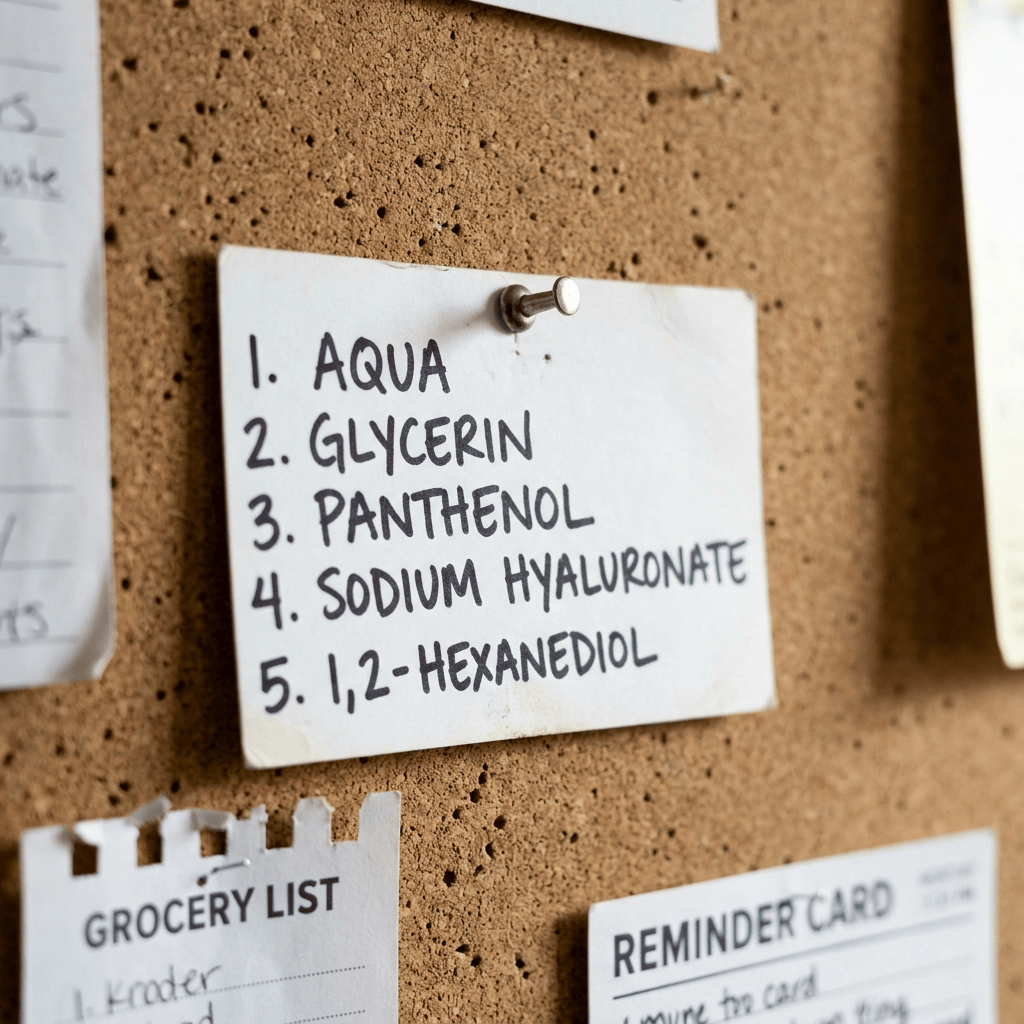 1. AQUA
2. GLYCERIN
3. PANTHENOL
4. SODIUM HYALURONATE
5. 1,2-HEXANEDIOL
GROCERY LIST
1. Kroder
REMINDER CARD
too card